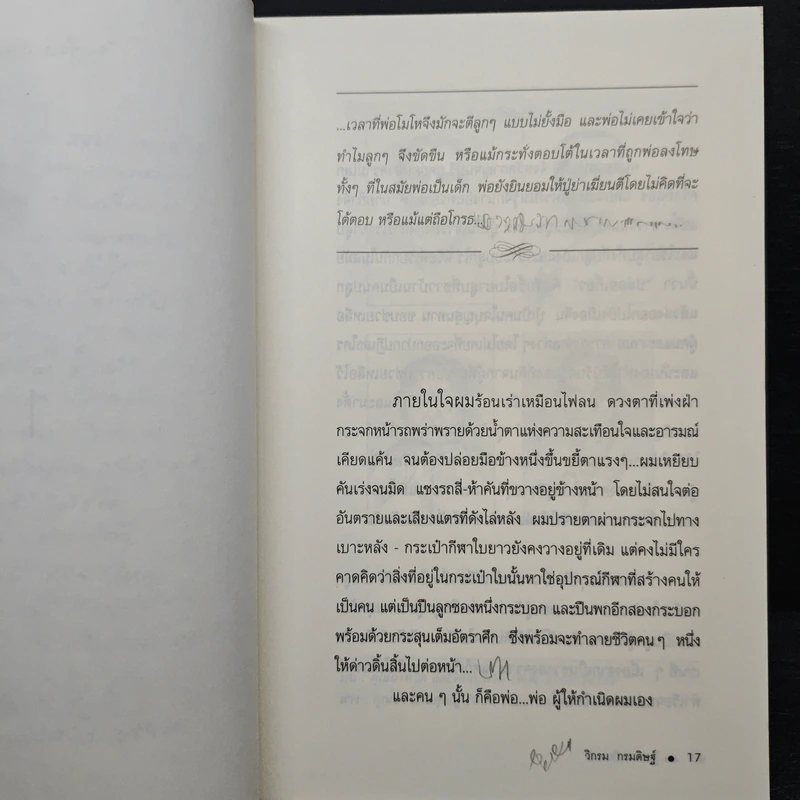 ...เวลาที่พ่อโมโหจึงมักจะตีลูกๆ แบบไม่ยั้งมือ และพ่อไม่เคยเข้าใจว่า
ทำไมลูกๆ จึงขัดขืน หรือแม้กระทั่งตอบโต้ในเวลาที่ถูกพ่อลงโทษ
ทั้งๆ ที่ในสมัยพ่อเป็นเด็ก พ่อยังยินยอมให้ปู่ย่าเฆี่ยนตีโดยไม่คิดที่จะ
โต้ตอบ หรือแม้แต่ถือโกรธ...
ภายในใจผมร้อนเร่าเหมือนไฟลน ดวงตาที่เพ่งฝ่า
กระจกหน้ารถพร่าพรายด้วยน้ำตาแห่งความสะเทือนใจและอารมณ์
เคียดแค้น จนต้องปล่อยมือข้างหนึ่งขึ้นขยี้ตาแรงๆ...ผมเหยียบ
คันเร่งจนมิด แซงรถสี่-ห้าคันที่ขวางอยู่ข้างหน้า โดยไม่สนใจต่อ
อันตรายและเสียงแตรที่ดังไล่หลัง ผมปรายตาผ่านกระจกไปทาง
เบาะหลัง - กระเป๋ากีฬาใบยาวยังคงวางอยู่ที่เดิม แต่คงไม่มีใคร
คาดคิดว่าสิ่งที่อยู่ในกระเป๋าใบนั้นหาใช่อุปกรณ์กีฬาที่สร้างคนให้
เป็นคน แต่เป็นปืนลูกซองหนึ่งกระบอก และปืนพกอีกสองกระบอก
พร้อมด้วยกระสุนเต็มอัตราศึก ซึ่งพร้อมจะทำลายชีวิตคนๆ หนึ่ง
ให้ด่าวดิ้นสิ้นไปต่อหน้า...
และคน ๆ นั้น ก็คือพ่อ...พ่อ ผู้ให้กำเนิดผมเอง
วิกรม กรมดิษฐ์ ● 17